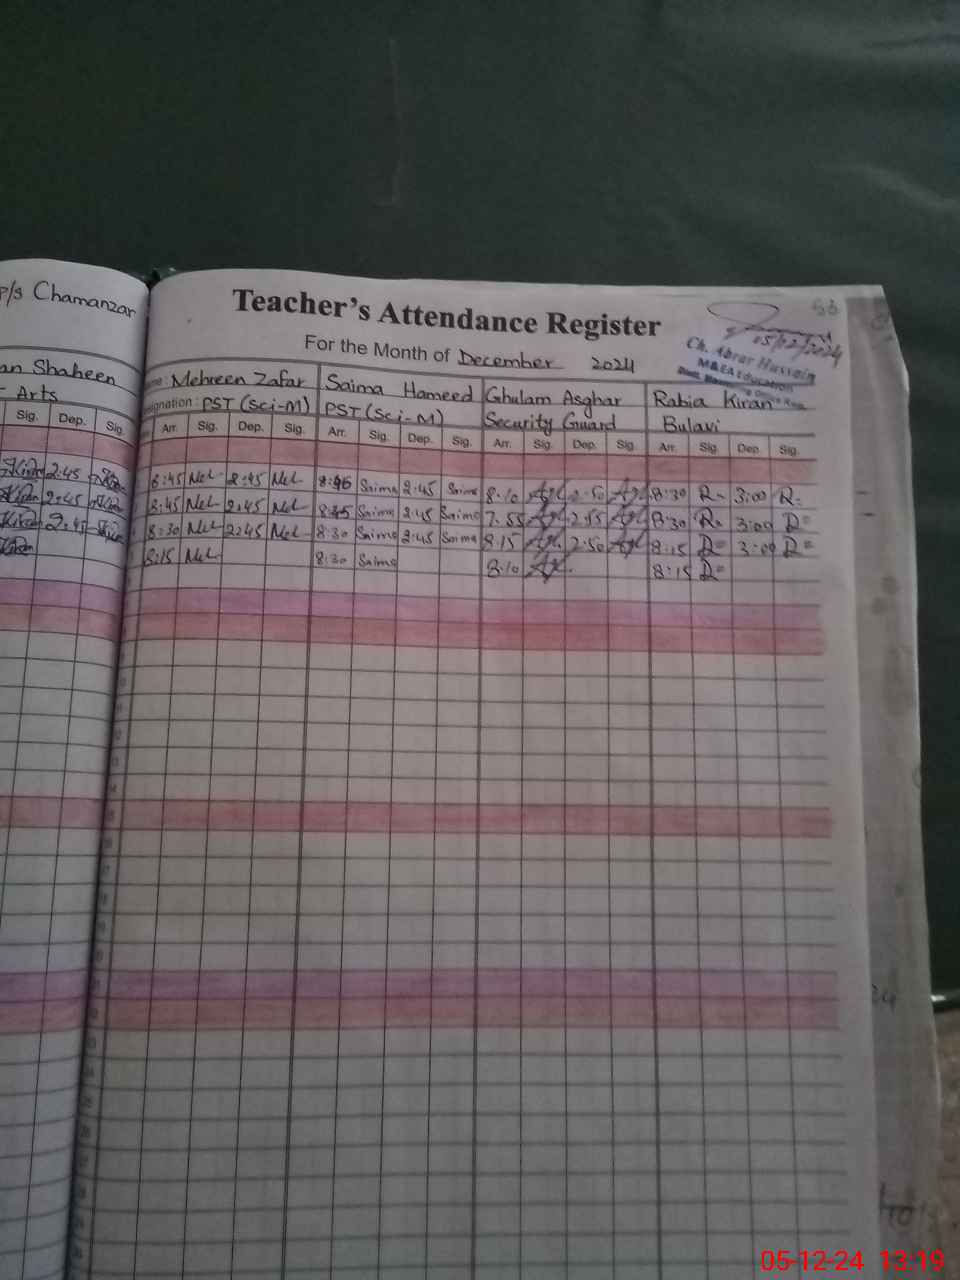 p/s Chamanzar
an Shaheen
Arts
Sig. Dep. Sig.
Kiran 2:45 Kiran
Kiran 2:45 Kiran
Kiran 2:45 Kiran
Kiran
53
Teacher's Attendance Register
05/12/2024
For the Month of December 2024
Ch. Abrar Hussain
M&EA Education
Name: Mehreen Zafar Saima Hameed Ghulam Asghar Rabia Kiran
Designation: PST (Sci-M) PST (Sci-M) Security Guard Bulavi
Arr. Sig. Dep. Sig. Arr. Sig. Dep. Sig. Arr. Sig. Dep. Sig. Arr. Sig. Dep. Sig.
8:45 2:45 8:45 Saima 2:45 Saima 8:10 2:50 8:30 R 3:00 R
8:45 2:45 8:45 Saima 2:45 Saima 7.55 2:55 8:30 R 3:00 R
8:30 2:45 8:30 Saima 2:45 Saima 8:15 2:50 8:15 R 3:00 R
8:15 8:30 Saima 8:10 8:15 R
24
05-12-24 13:19